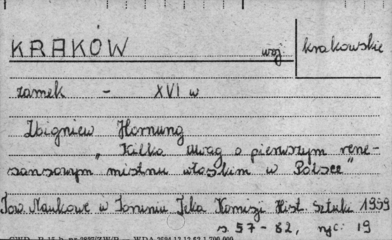 KRAKÓW woj. krakowskie
zamek - XVI w
Zbigniew Hornung
"Kilka uwag o pierwszym rene-
sansowym mistrzu włoskim w Polsce"
Tow. Naukowe w Toruniu Teka Komisji Hist. Sztuki 1959
s 57 - 82, ryc. 19